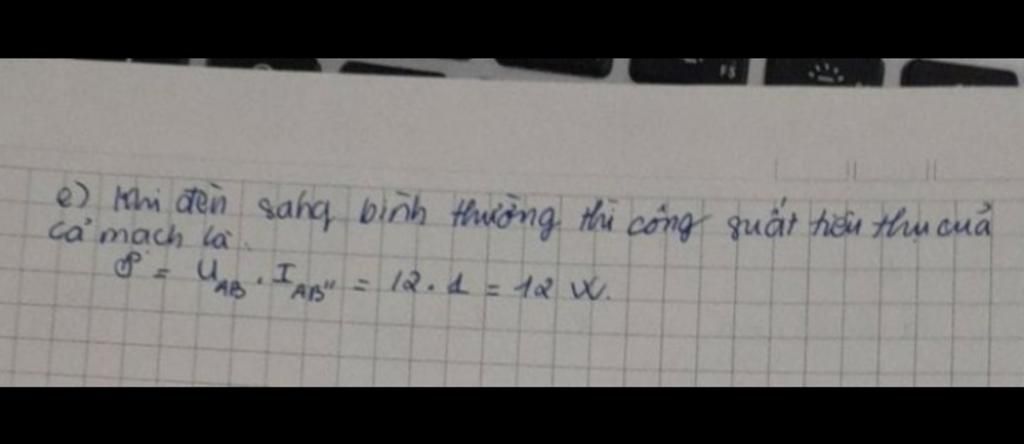 F5
e) Khi đèn sáng bình thường thì công suất tiêu thụ của
cả mạch là.
P = U_AB . I_AB'' = 12 . 1 = 12 W.